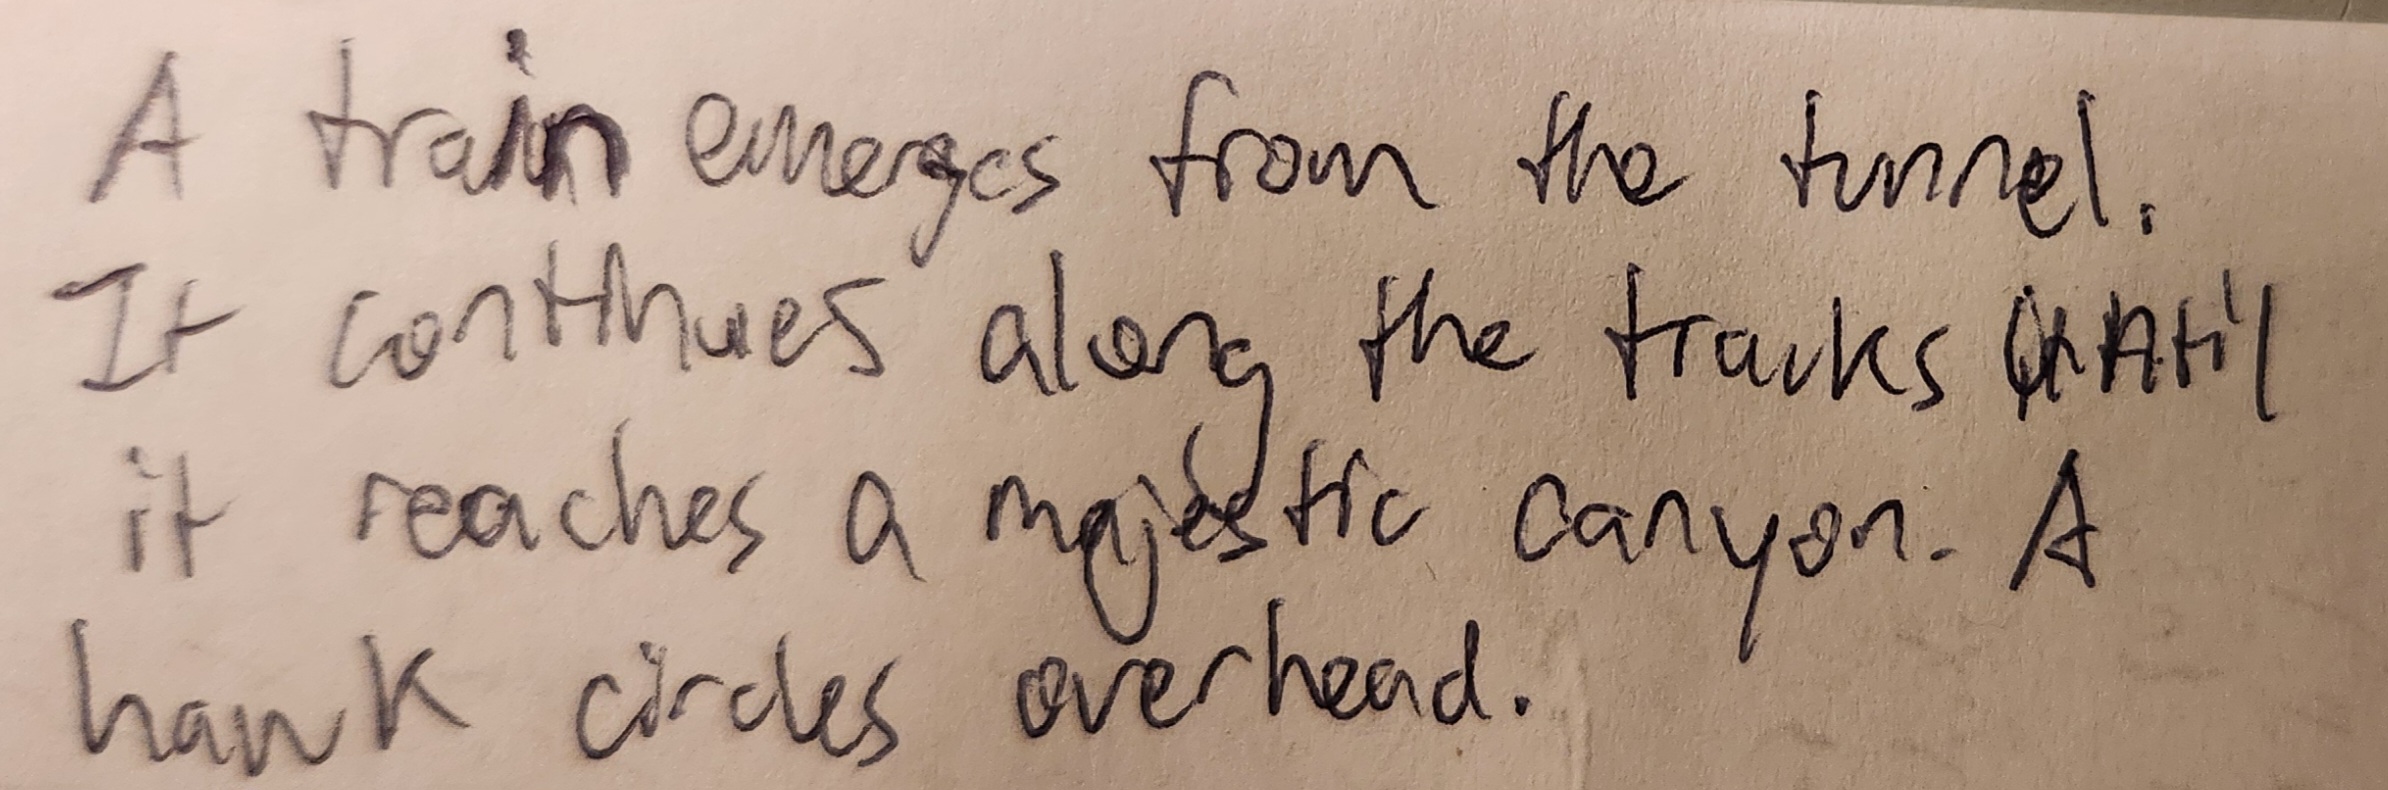 A train emerges from the tunnel.
It continues along the tracks until
it reaches a majestic canyon. A
hawk circles overhead.